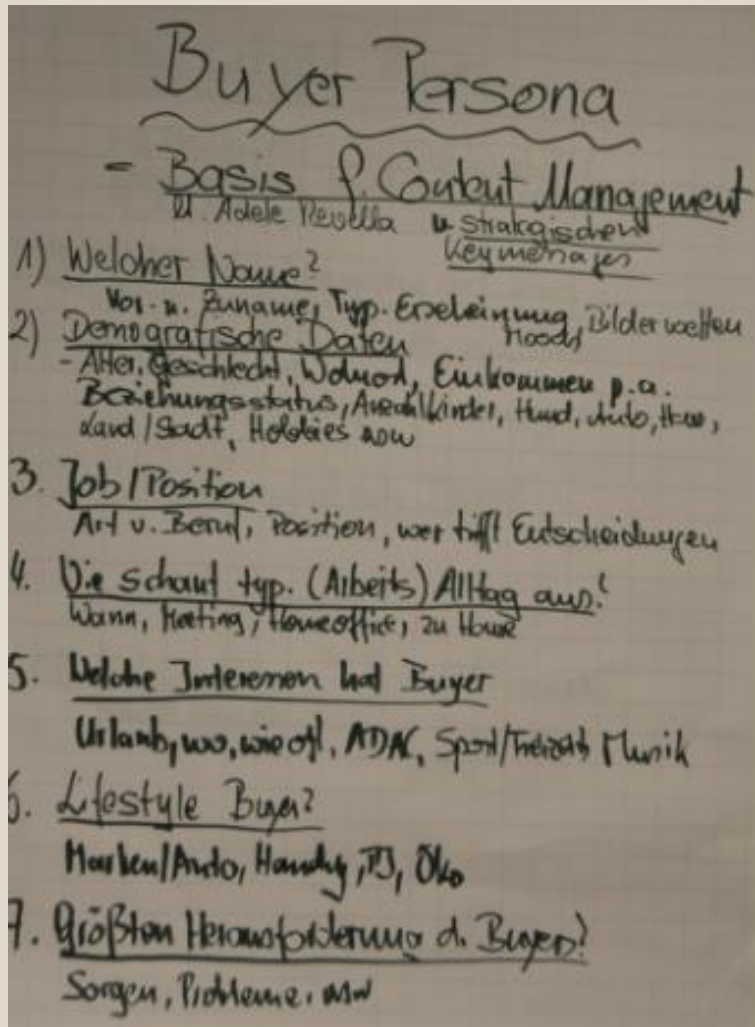 Buyer Persona
- Basis f. Content Management
n. Adele Revella u strategischen
Keymessages
1) Welcher Name?
Vor- u. Zuname, Typ. Erscheinung, Bilderwelten
Moods
2) Demografische Daten
- Alter, Geschlecht, Wohnort, Einkommen p.a.
Beziehungsstatus, Anzahl Kinder, Hund, Auto, Haus,
Land/Stadt, Hobbies usw
3. Job/Position
Art v. Beruf, Position, wer trifft Entscheidungen
4. Wie schaut typ. (Arbeits) Alltag aus?
Wann, Meeting, Homeoffice, zu Hause
5. Welche Interessen hat Buyer
Urlaub, wo, wie oft, ADAC, Sport/Freizeit Musik
6. Lifestyle Buyer?
Marken/Auto, Handy, Öko
7. Größten Herausforderung d. Buyers?
Sorgen, Probleme, usw